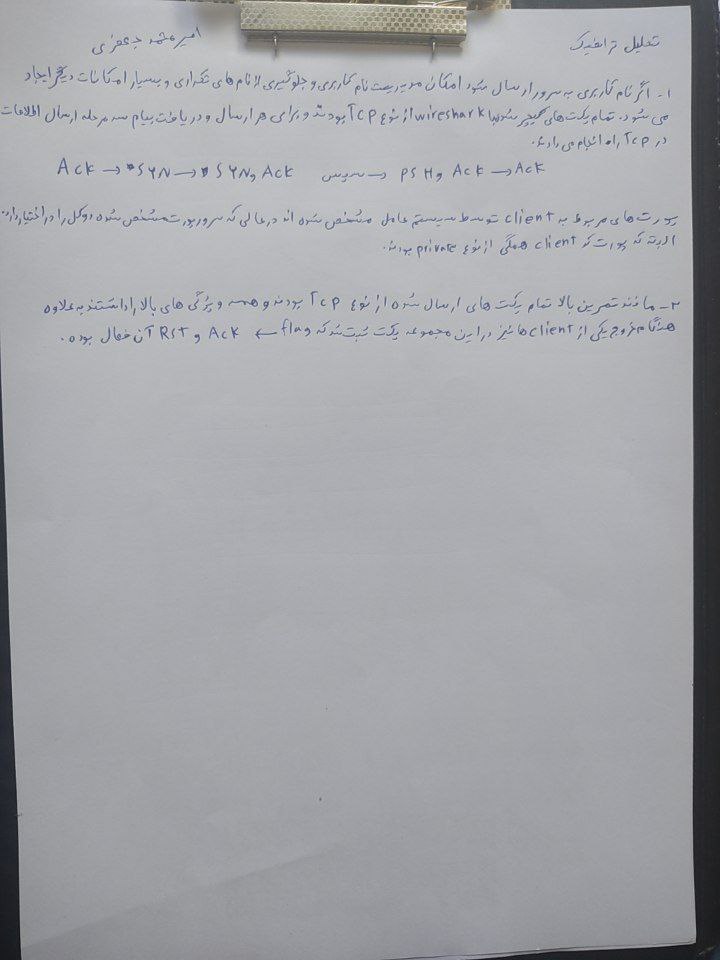 تحلیل ترافیک امیرمحمد جعفری
۱- اگر نام کاربری به سرور ارسال شود امکان مدیریت نام کاربری و جلوگیری از نام های تکراری و بسیار امکانات دیگر ایجاد
می شود. تمام پکت های کپچر شده با wireshark از نوع Tcp بودند و برای هر ارسال و دریافت پیام سه مرحله ارسال اطلاعات
در Tcp را انجام می دادند.
Ack → SYN → SYN و Ack سپس → PSH و Ack → Ack
پورت های مربوط به client توسط سیستم عامل مشخص شده اند درحالی که سرور پورت مشخص شده را در اختیار دارد.
البته که پورت client همگی از نوع private بودند.
۲- مانند تمرین بالا تمام پکت های ارسال شده از نوع Tcp بودند و همه ویژگی های بالا را داشتند به علاوه
هنگام خروج یکی از client ها نیز در این مجموعه پکت ثبت شد که flag ← Ack و Rst آن فعال بوده.